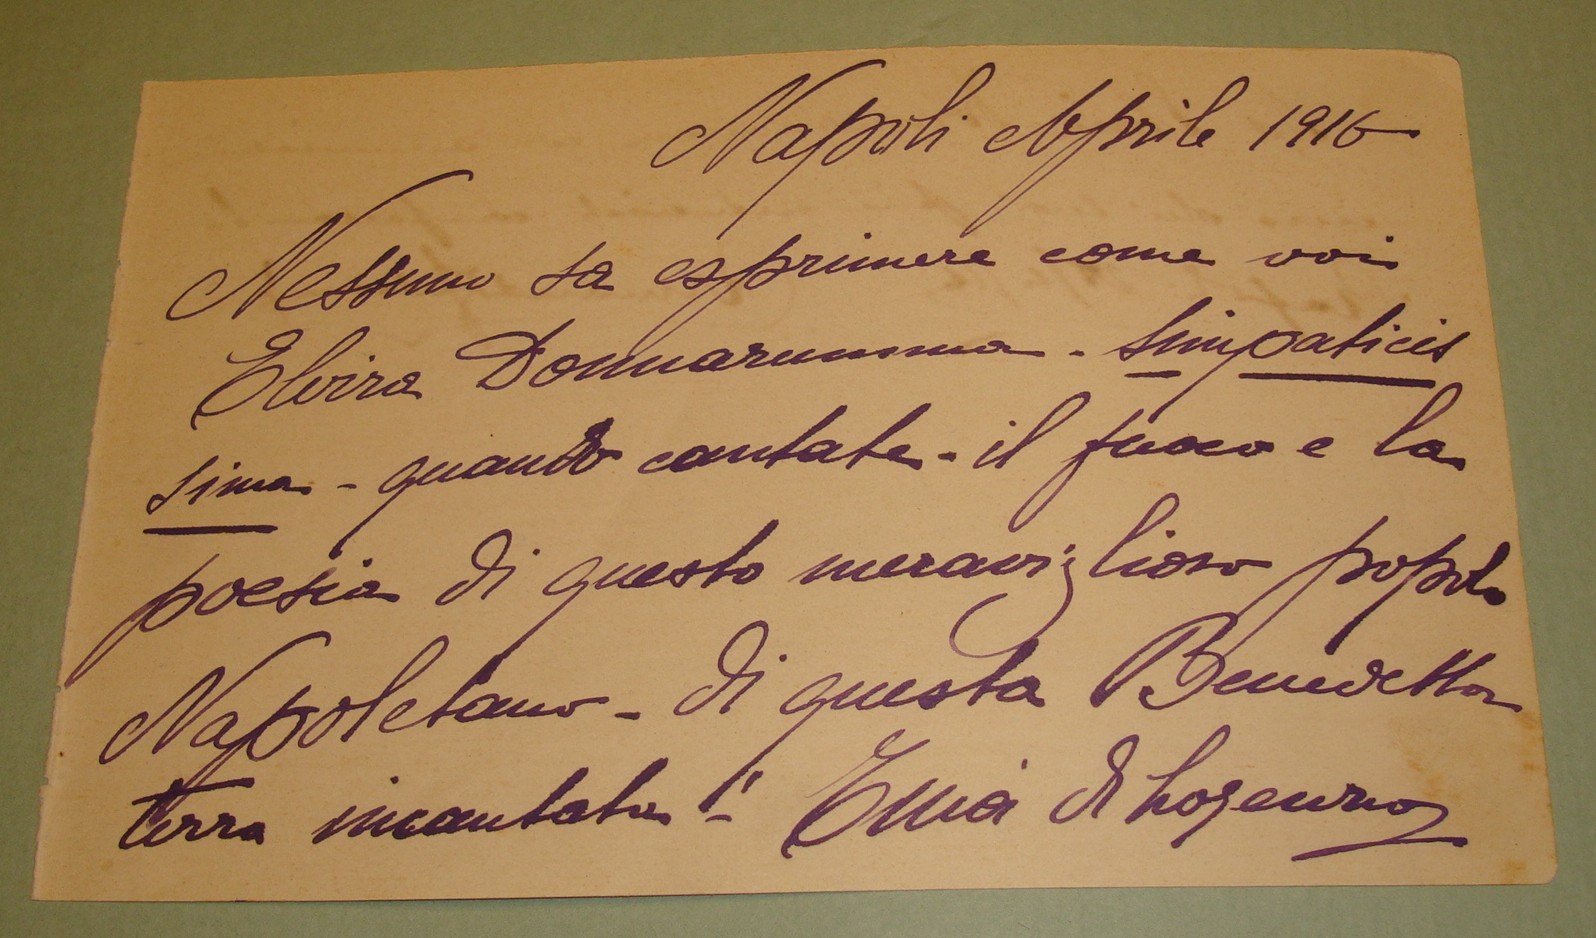 Napoli Aprile 1916
Nessuno sa esprimere come voi
Elvira Donnarumma - simpaticis
sima - quando cantate - il fuoco e la
poesia di questo meraviglioso popolo
Napoletano - di questa Benedetta
terra incantata!! Tina di Lorenzo